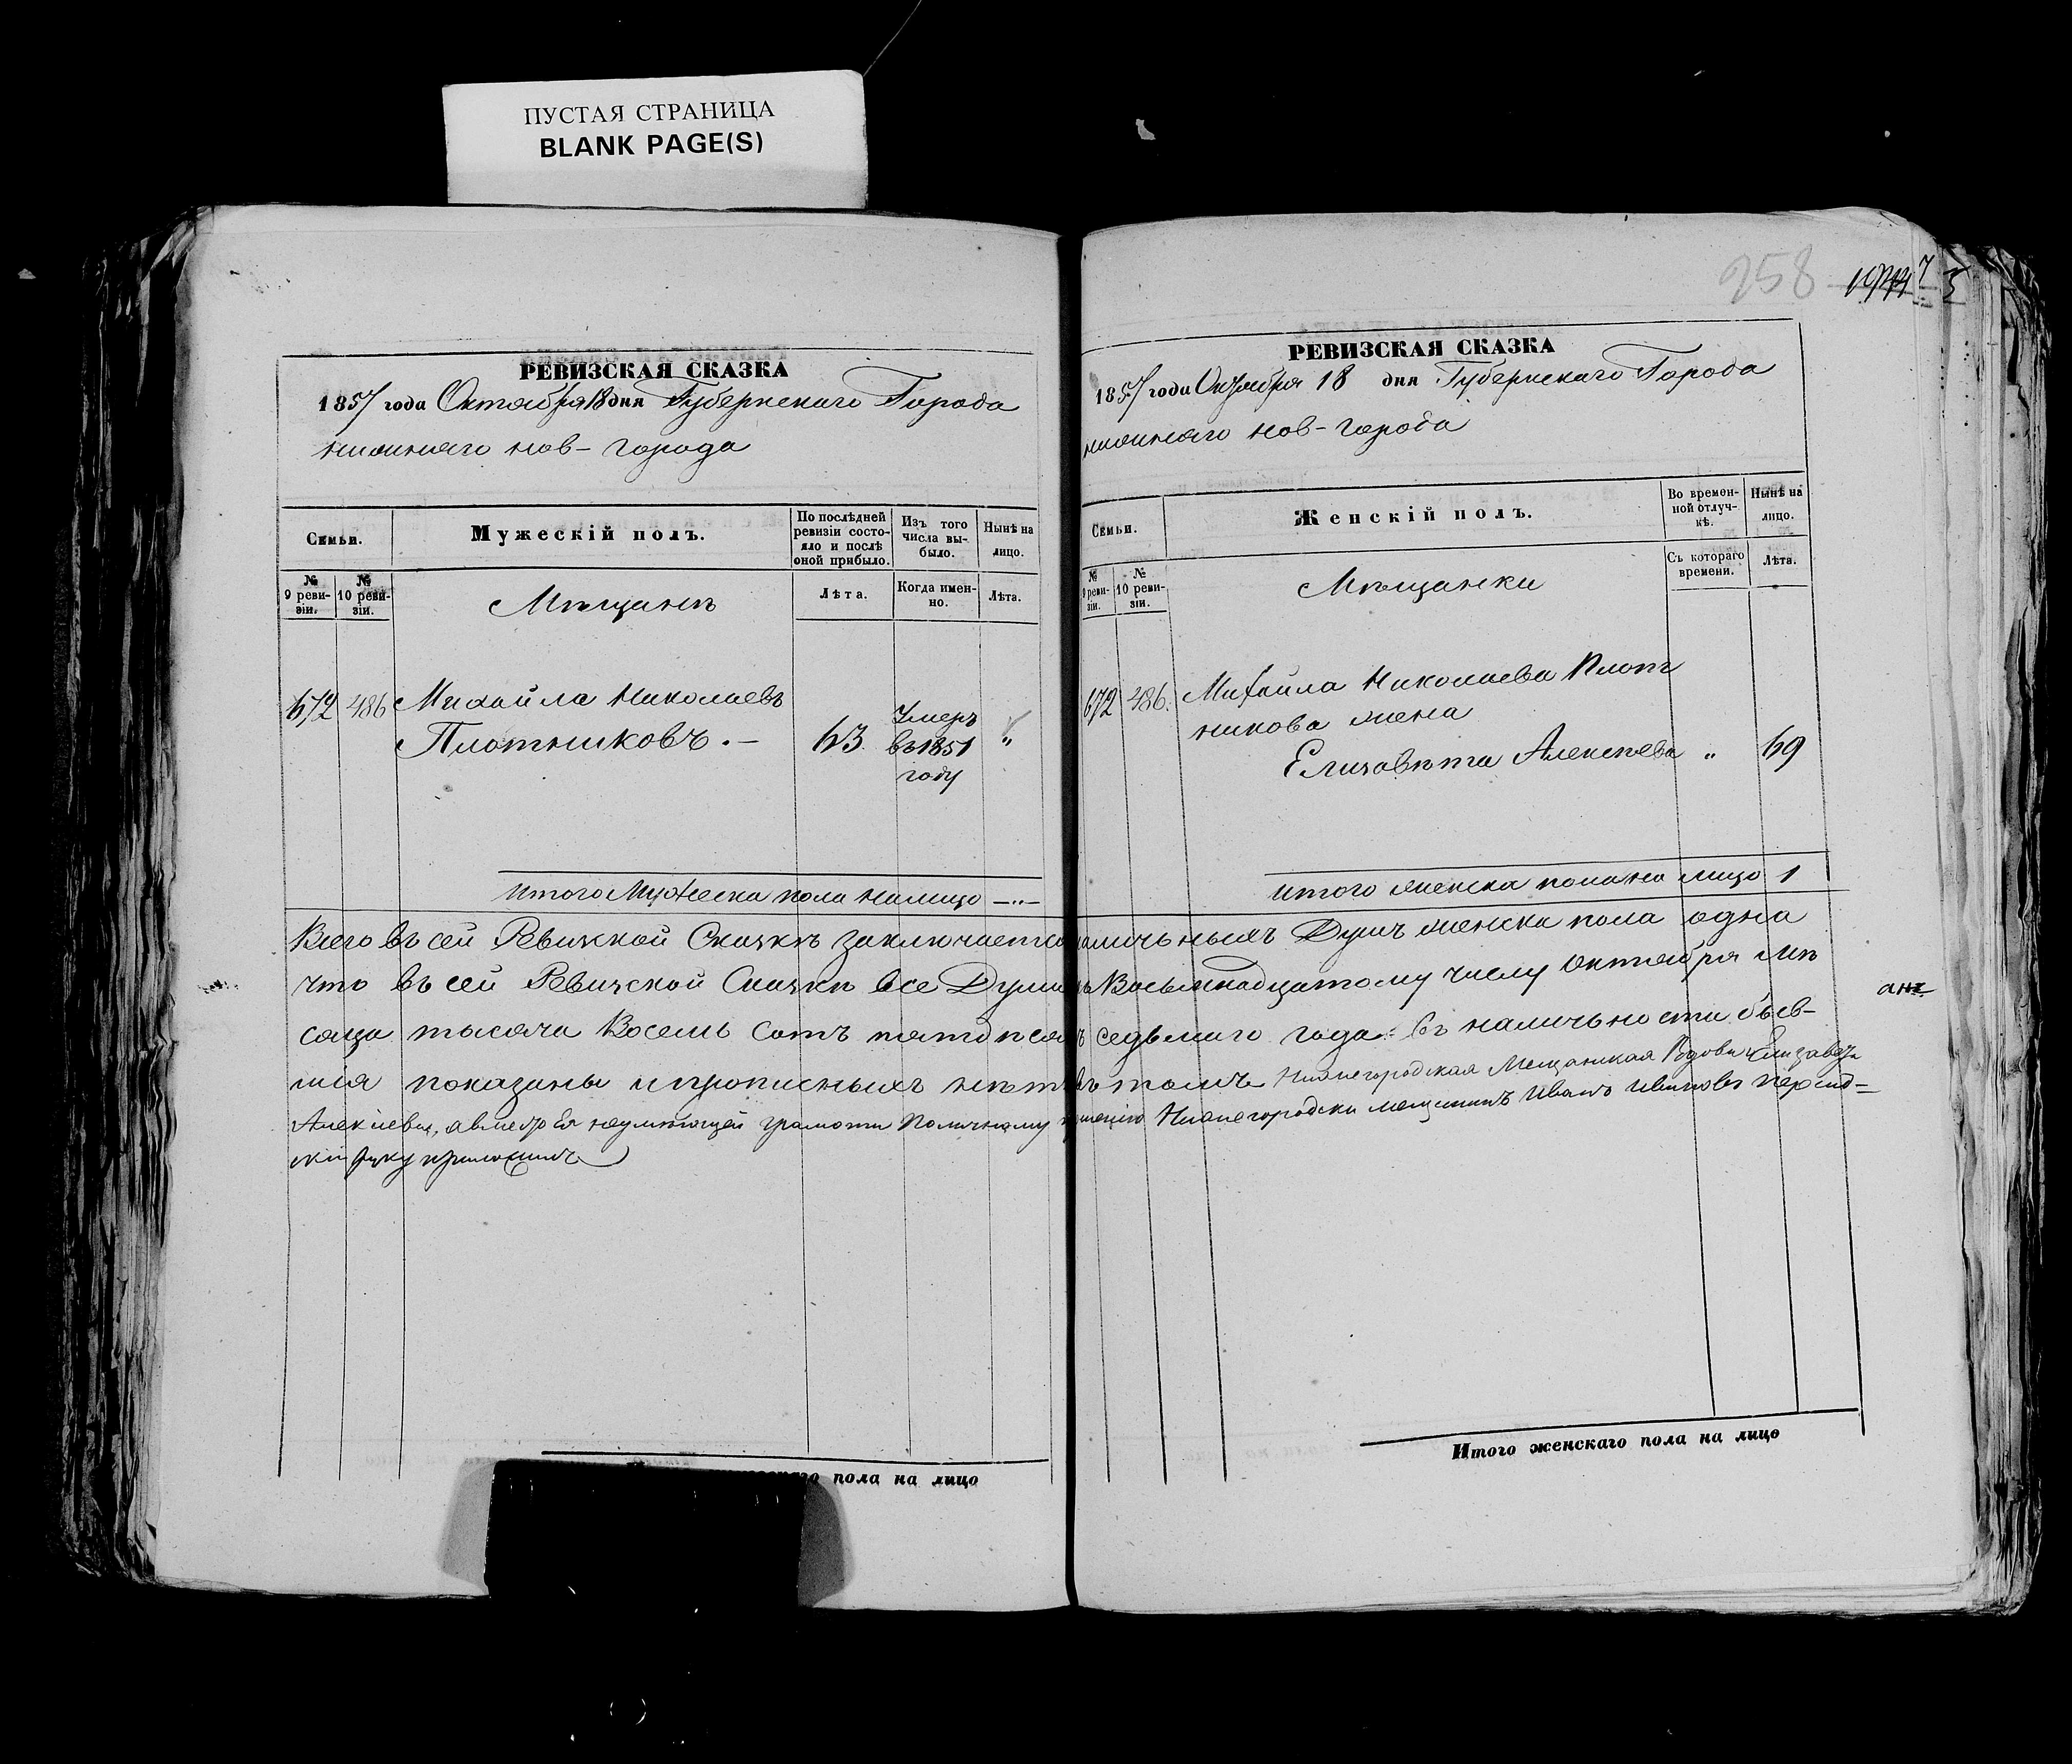 ПУСТАЯ СТРАНИЦА
BLANK PAGE(S)
РЕВИЗСКАЯ СКАЗКА
1857 года Октября 18 дня Губернскаго Города
нижняго нов-города
Семьи.
Мужескій полъ.
По послѣдней ревизіи состояло и послѣ оной прибыло.
Изъ того числа выбыло.
Нынѣ на лицо.
№ 9 ревизіи.
№ 10 ревизіи.
Мѣщанѣ
Лѣта.
Когда именно.
Лѣта.
672 486 Михайла Николаевъ
Плотниковъ.— 63 Умеръ въ 1851 году "
Итого Мужеска пола налицо —"—
258
РЕВИЗСКАЯ СКАЗКА
1857 года Октября 18 дня Губернскаго Города
нижняго нов-города
Семьи.
Женскій полъ.
Во временной отлучкѣ.
Нынѣ на лицо.
№ 9 ревизіи.
№ 10 ревизіи.
Мѣщанки
Съ котораго времени.
Лѣта.
672 486. Михайла Николаева Плот
никова жена
Елизавѣта Алексѣева " 69
Итого женска пола на лицо 1
Всего въ сей Ревизкой Сказкѣ заключается наличьныхъ Душъ женска пола одна
что въ сей Ревизской Сказки все Души Восьмнадцатому числу октября мѣ
сяца тысяча Восемь сотъ пятдпсят седьмаго года въ наличьности быв-
шія показаны и прописныхъ нѣтъ въ томъ Нижегородская Мещанская Вдова Елизавета
Алексіева, авместо Ея неумѣющей грамоти Поличному прошению Нижегородски мещанинъ Иванъ Ивановъ
руку приложилъ
Итого женскаго пола на лицо
пола на лицо